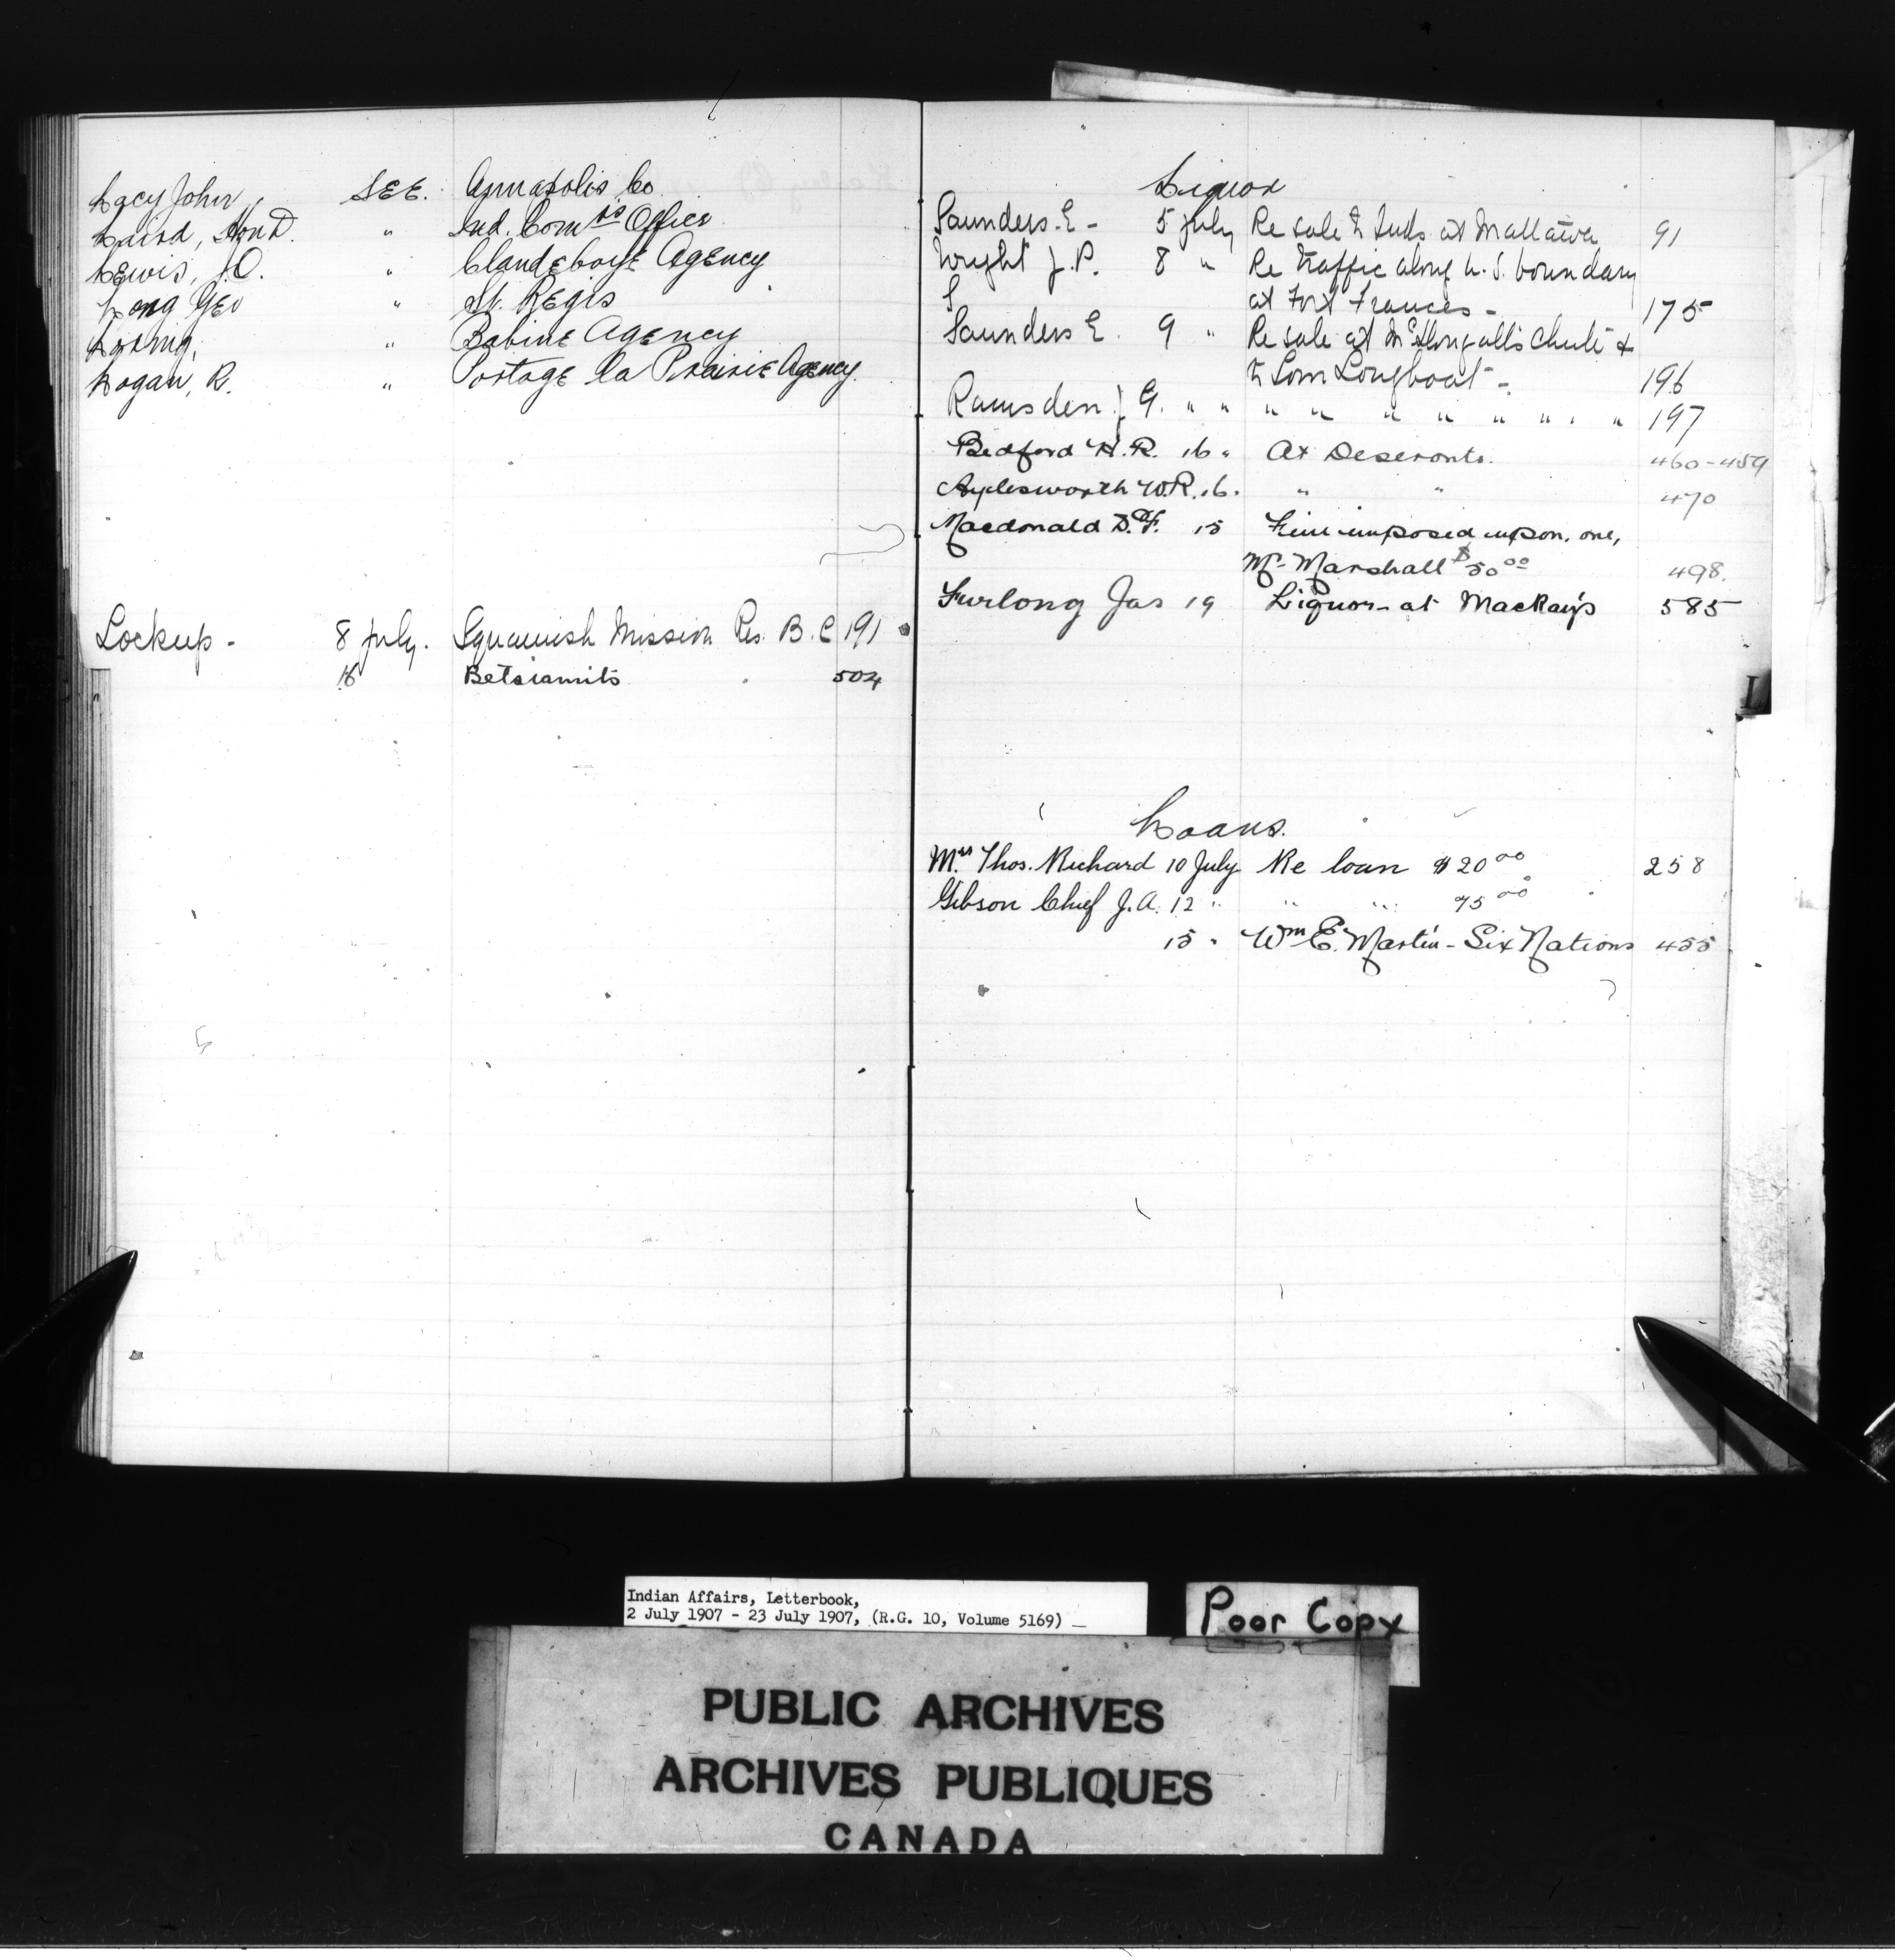 Lacy John, SEE. Annapolis Co
Laird, Hon D. " Ind. Comrs Office
Lewis, J.O. " Clandeboye Agency
Long Geo " St. Regis
Loring, " Babine Agency
Logan, R. " Portage la Prairie Agency.
Lockup - 8 July. Squamish Mission Res. B.C 191
16 Betsiamits 504
Liquor
Saunders. E - 5 July Re sale to Inds at Mattawa 91
Wright J.P. 8 " Re traffic along U.S. boundary
at Fort Frances - 175
Saunders E. 9 " Re sale at Chute &
to Tom Longboat - 196
Ramsden J G. " " " " " " " " . " 197
Bedford H.R. 16 " At Deseronto. 460-459
Aylesworth W.R. 16. " " 470
Macdonald D.F. 15 Fine imposed upon, one,
Mr. Marshall $50 00 498.
Furlong Jas 19 Liquor - at MacKay's 585
L
Loans.
Mrs. Thos. Richard 10 July Re loan $20 00 258
Gibson Chief J.A. 12 " " " 75 00
15 " Wm E. Martin - Six Nations 455
Indian Affairs, Letterbook,
2 July 1907 - 23 July 1907, (R.G. 10, Volume 5169) —
Poor Copy
PUBLIC ARCHIVES
ARCHIVES PUBLIQUES
CANADA